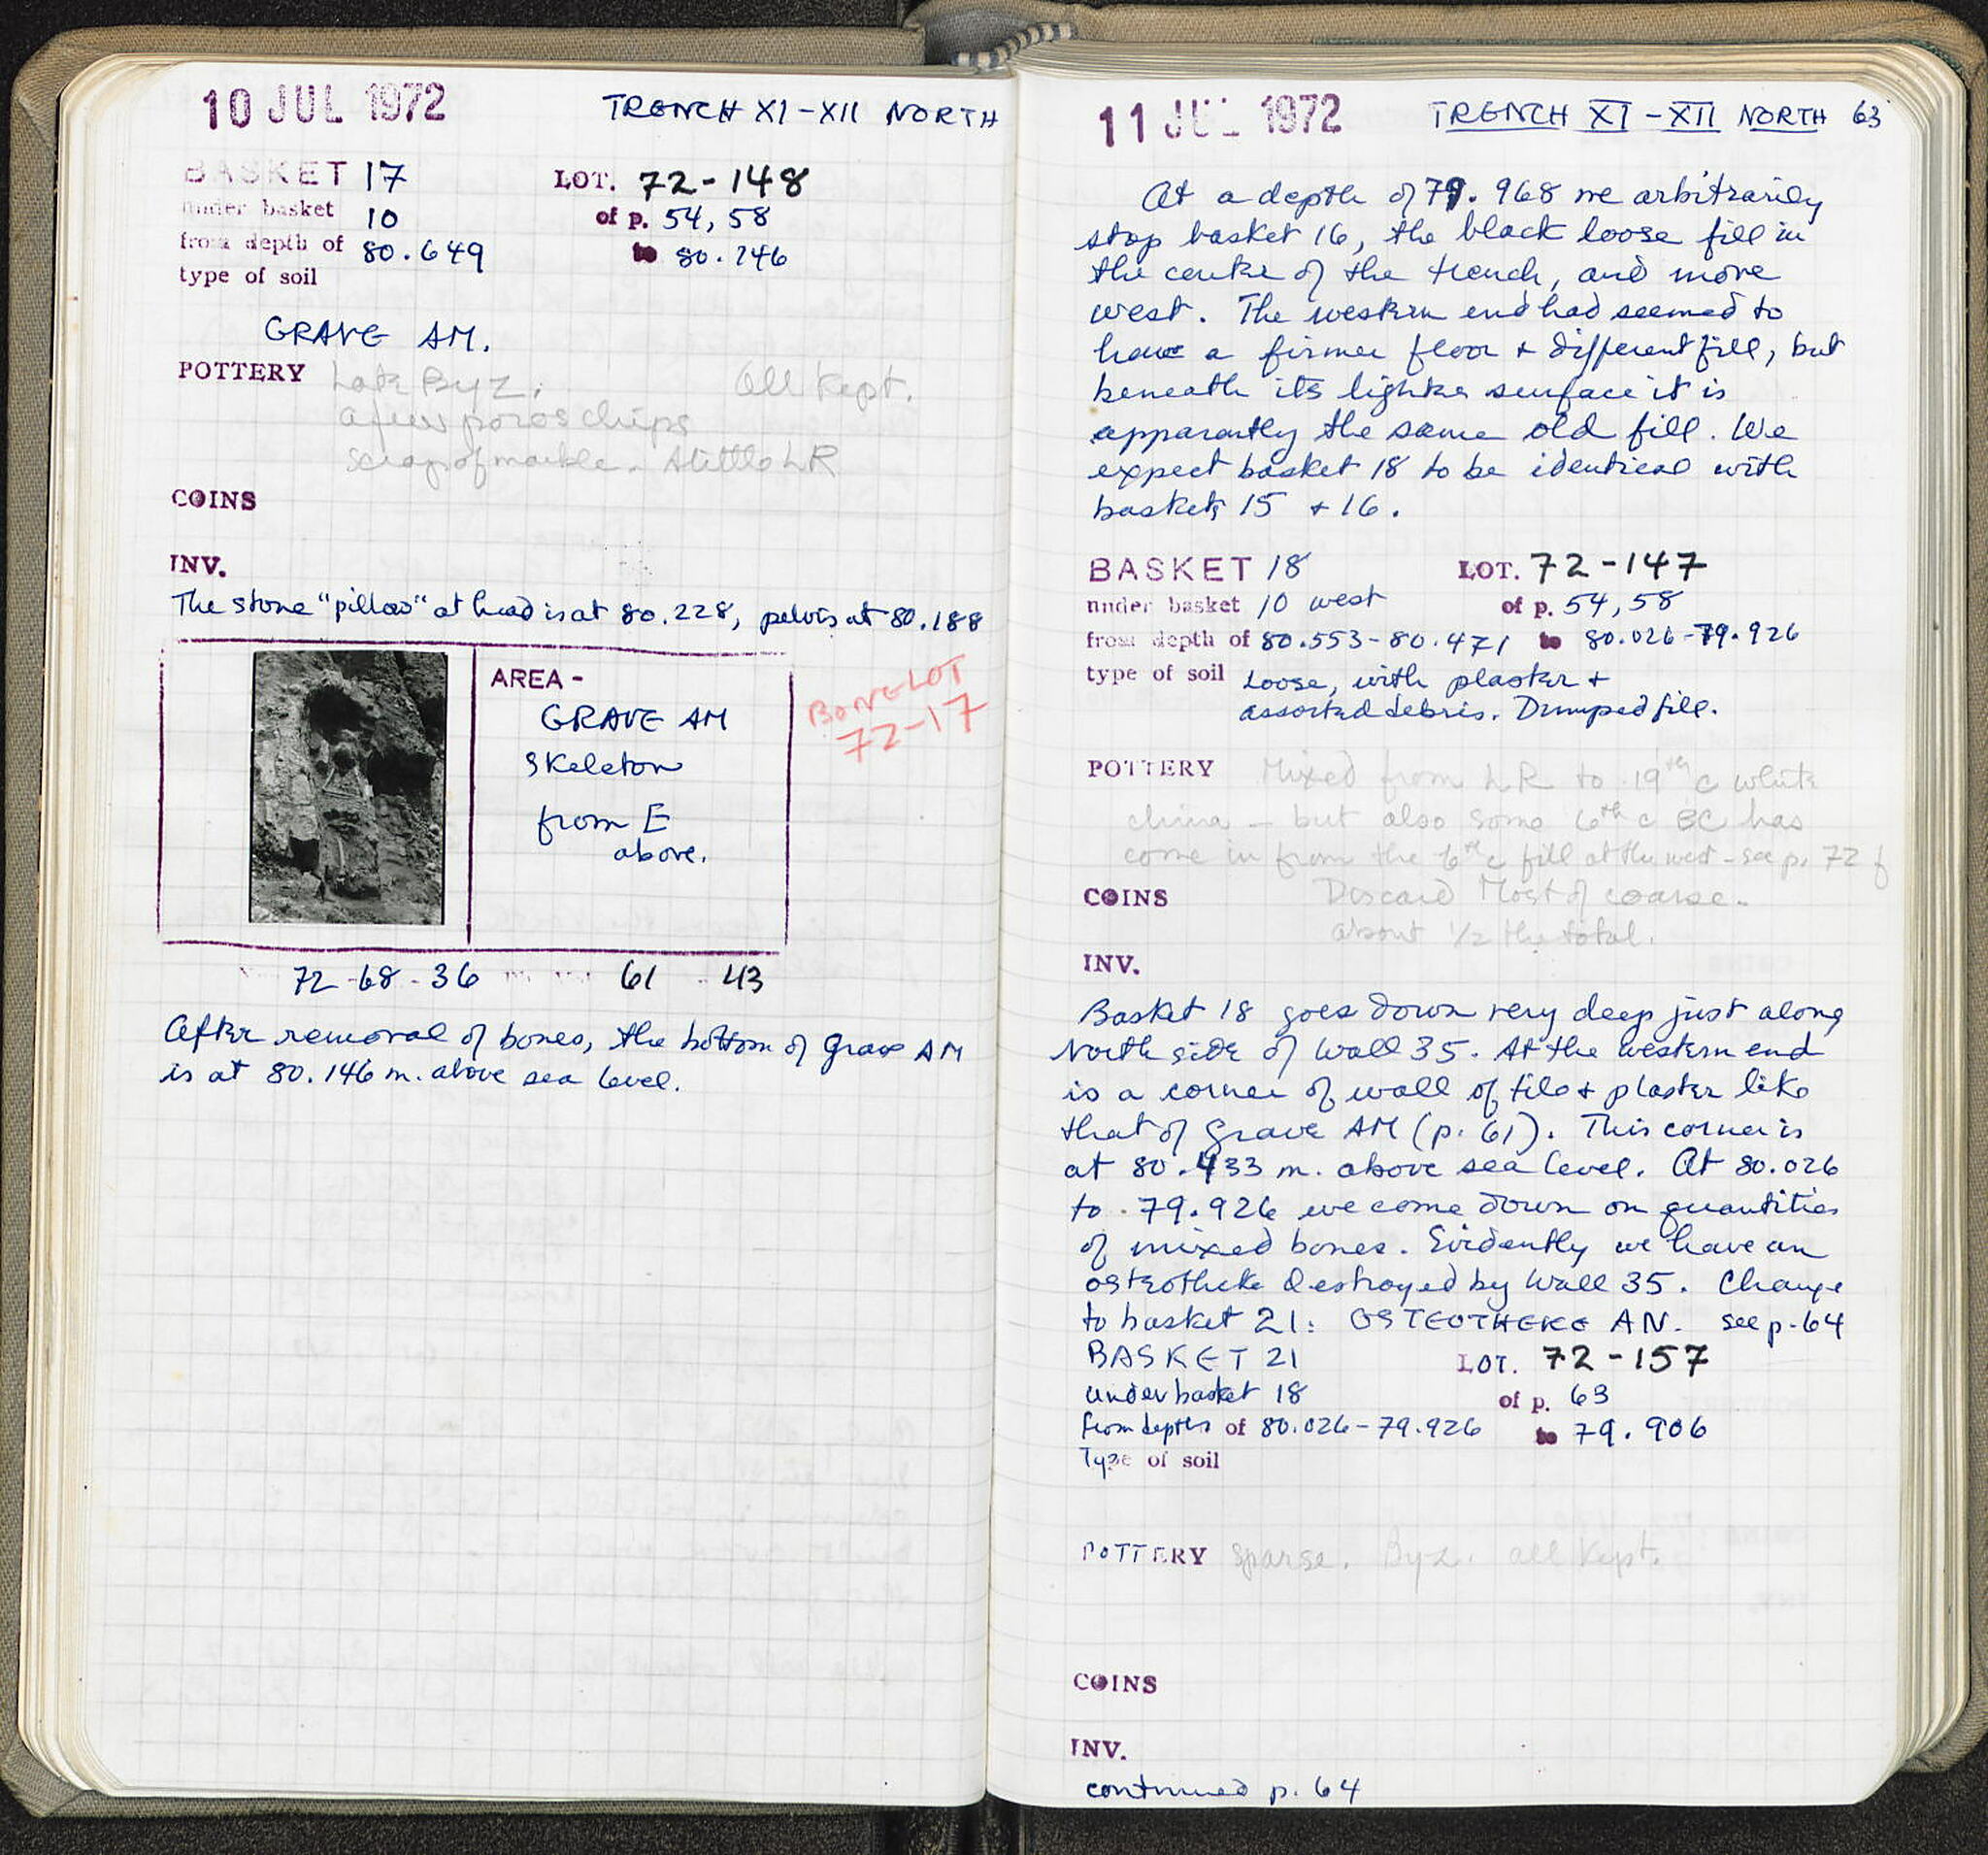 10 JUL 1972 TRENCH XI-XII NORTH
BASKET 17 LOT. 72-148
under basket 10 of p. 54, 58
from depth of 80.649 to 80.146
type of soil
GRAVE AM.
POTTERY Late Byz. All kept.
a few poros chips
scrap of marble. A little LR
COINS
INV.
The stone "pillow" at head is at 80.228, pelvis at 80.188
AREA -
GRAVE AM
Skeleton
from E
above.
BONE LOT
72-17
72-68-36 61 43
After removal of bones, the bottom of grave AM
is at 80.146 m. above sea level.
11 JUL 1972 TRENCH XI-XII NORTH 63
At a depth of 79.968 we arbitrarily
stop basket 16, the black loose fill in
the centre of the trench, and move
west. The western end had seemed to
have a firmer floor + different fill, but
beneath its lighter surface it is
apparently the same old fill. We
expect basket 18 to be identical with
baskets 15 + 16.
BASKET 18 LOT. 72-147
under basket 10 west of p. 54, 58
from depth of 80.553-80.471 to 80.026-79.926
type of soil Loose, with plaster +
assorted debris. Dumped fill.
POTTERY Mixed from LR to 19th c white
china - but also some 6th c BC has
come in from the 6th c fill at the west - see p. 72 f
COINS Discard Most of coarse -
about 1/2 the total.
INV.
Basket 18 goes down very deep just along
North side of Wall 35. At the western end
is a corner of wall of tile + plaster like
that of grave AM (p. 61). This corner is
at 80.433 m. above sea level. At 80.026
to 79.926 we come down on quantities
of mixed bones. Evidently we have an
osteotheke destroyed by Wall 35. Change
to basket 21: OSTEOTHEKE AN. see p. 64
BASKET 21 LOT. 72-157
under basket 18 of p. 63
from depths of 80.026-79.926 to 79.906
Type of soil
POTTERY sparse. Byz. all kept.
COINS
INV.
continued p. 64